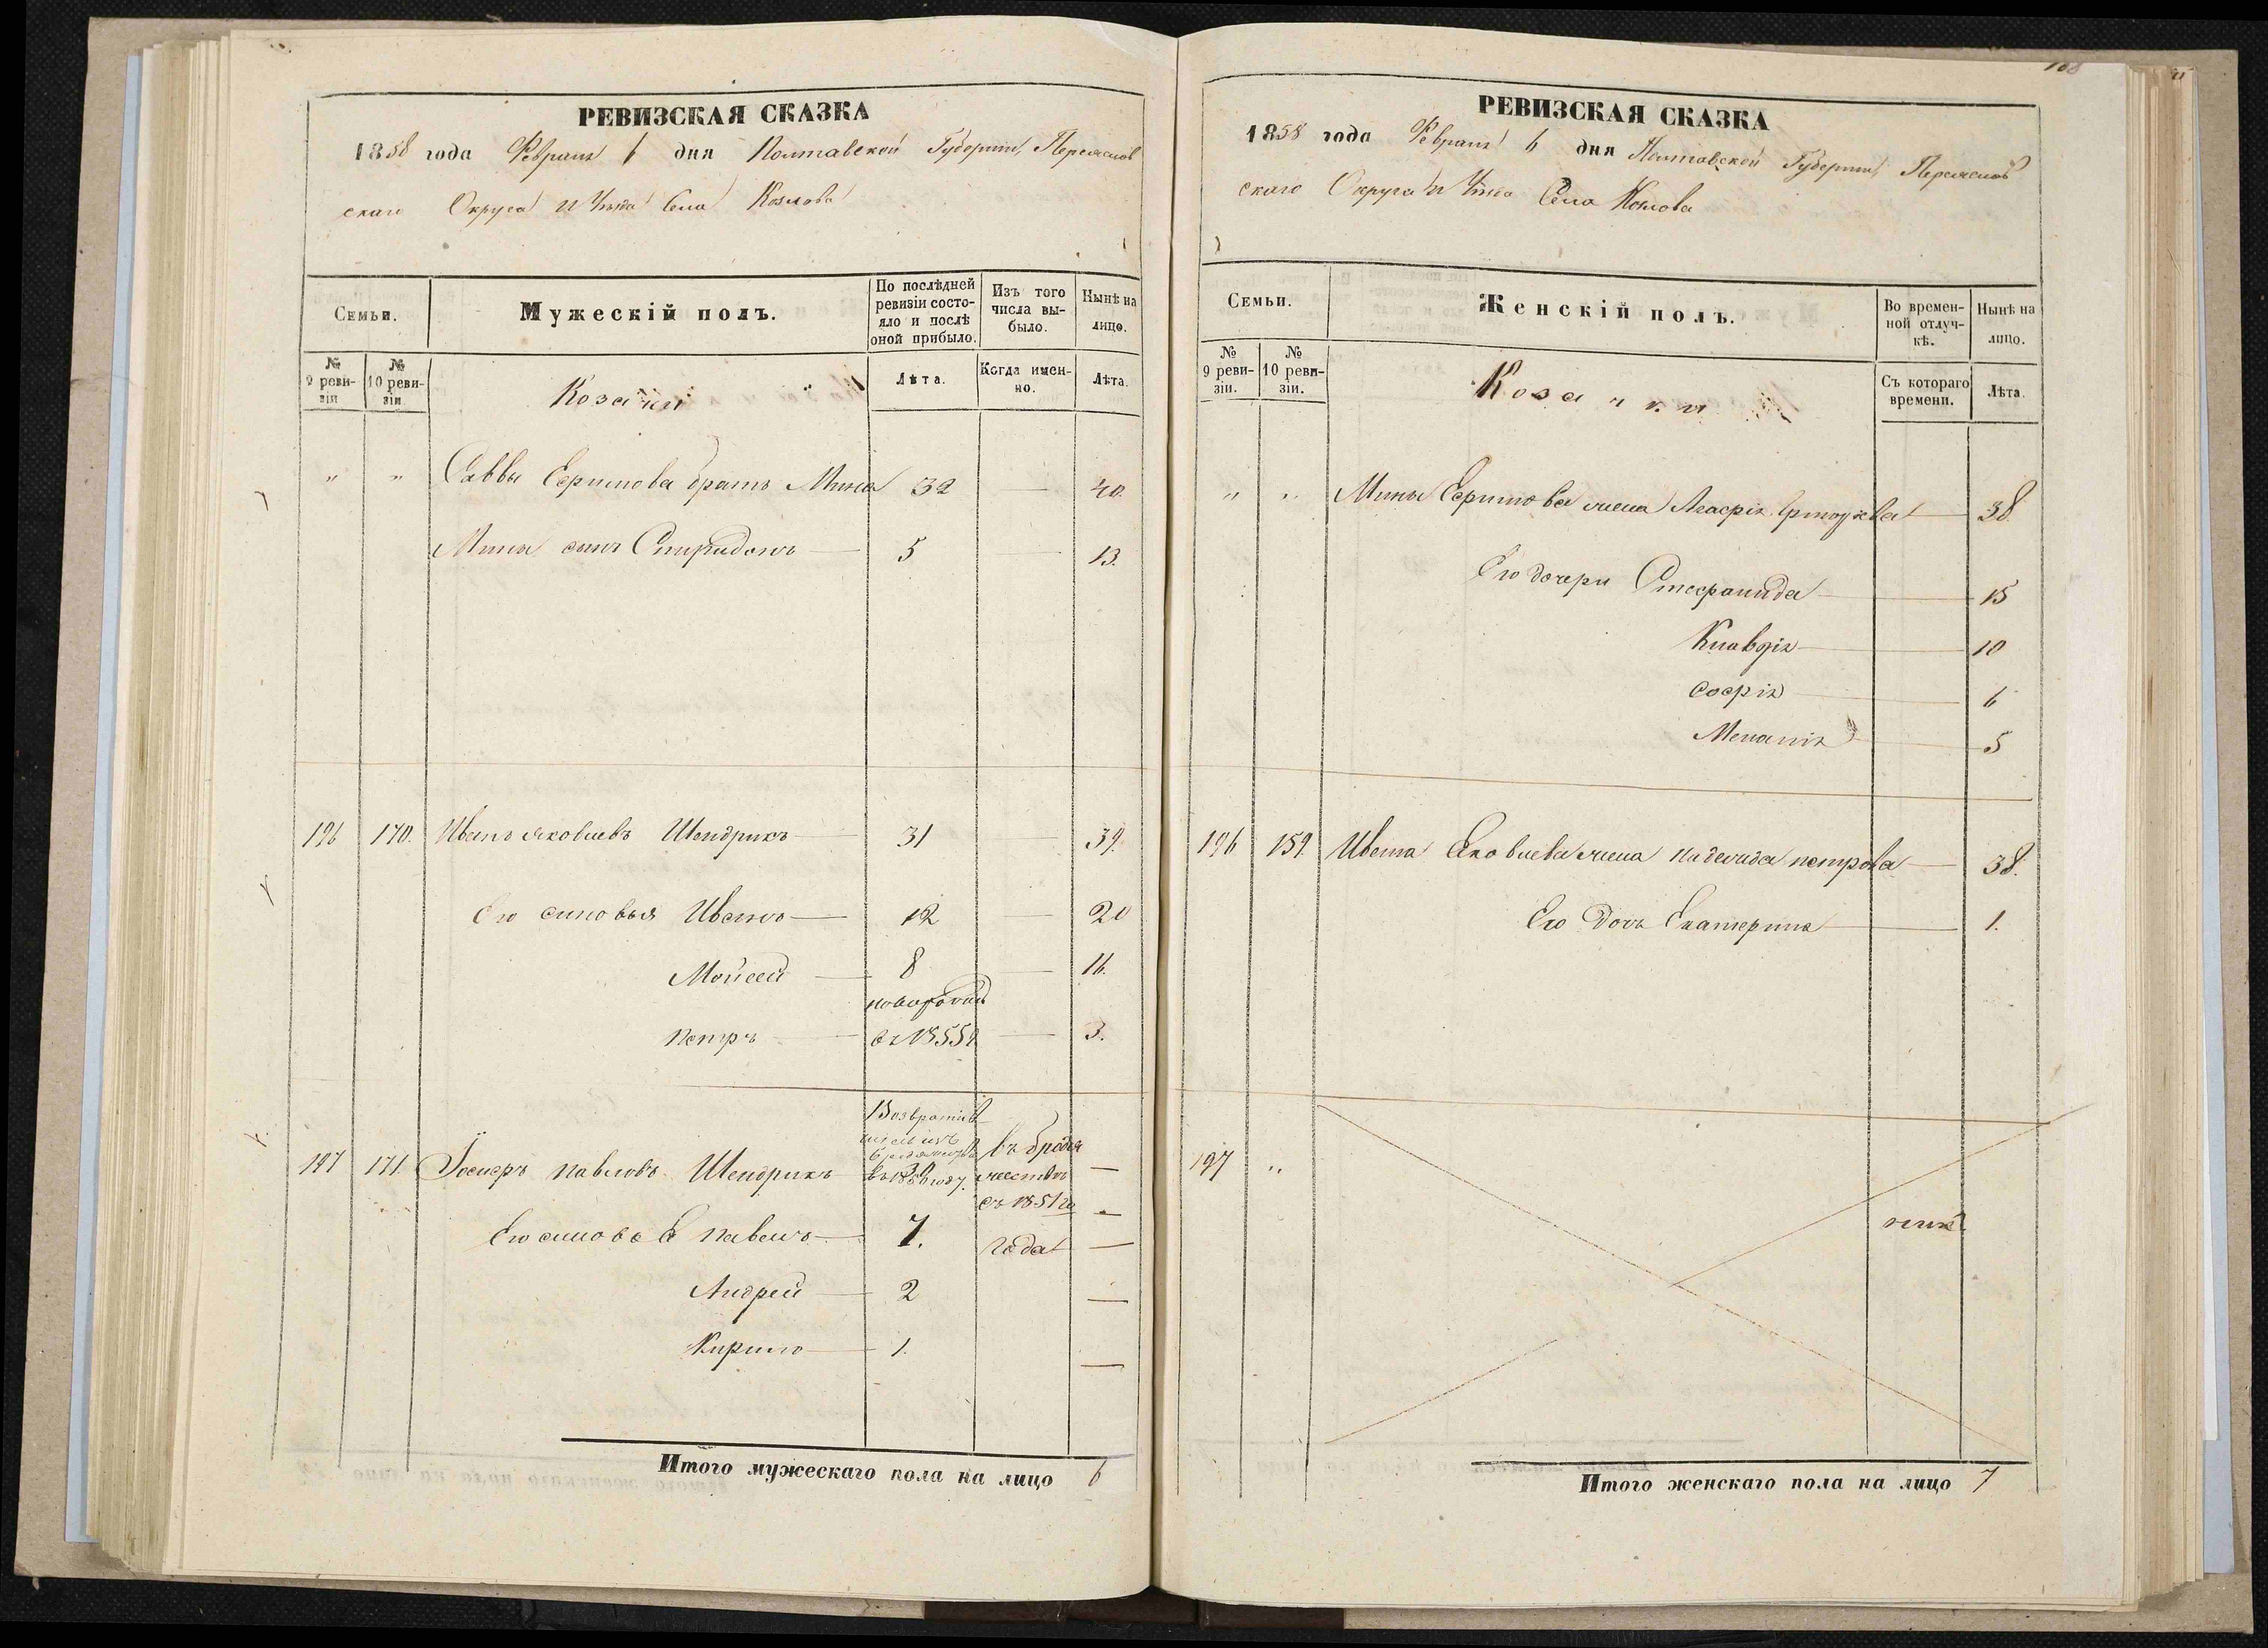 РЕВИЗСКАЯ СКАЗКА
1858 года Февраля 6 дня Полтавской Губерніи, Переяслов
скаго Округа и Уѣзда Села Козлова
Семьи.
Мужескій полъ.
По послѣдней ревизіи состояло и послѣ оной прибыло.
Изъ того числа выбыло.
Нынѣ на лицо.
№ 9 ревизіи
№ 10 ревизіи.
Козачки
Лѣта.
Когда именно.
Лѣта.
" " Саввы Ефимова братъ Мина 32 — 40.
Мины сынъ Спиридонъ — 5 — 13.
196 170. Иванъ Яковлевъ Шендрикъ — 31 — 39.
Его синовья Иванъ — 12 — 20
Мойсей — 8 — 16.
новорожд
Петръ — съ 1855г — 3.
Возвратив
шися изъ
197 171. Іосифъ Павловъ Шендрикъ 30 въ бродя —
въ 1856 году. жествѣ
съ 1851го —
Его синове Павелъ — 7. года —
Андрей — 2 —
Кирило — 1. —
Итого мужескаго пола на лицо 6
РЕВИЗСКАЯ СКАЗКА
1858 года Февраля 6 дня Полтавской Губерніи Переяслов
скаго Округа и Уѣзда Села Козлова
Семьи.
Женскій полъ.
Во временной отлучкѣ.
Нынѣ на лицо.
№ 9 ревизіи.
№ 10 ревизіи.
Козачки
Съ котораго времени.
Лѣта.
" " Мины Ефимова жена Агафія — 38.
Его дочери Стефанида — 15
Клавдія — 10
Софія — 6
Меланія — 5
196 159. Ивана Яковлева жена Надежда Петрова — 38.
Его дочь Екатерина — 1.
197 "
Итого женскаго пола на лицо 7